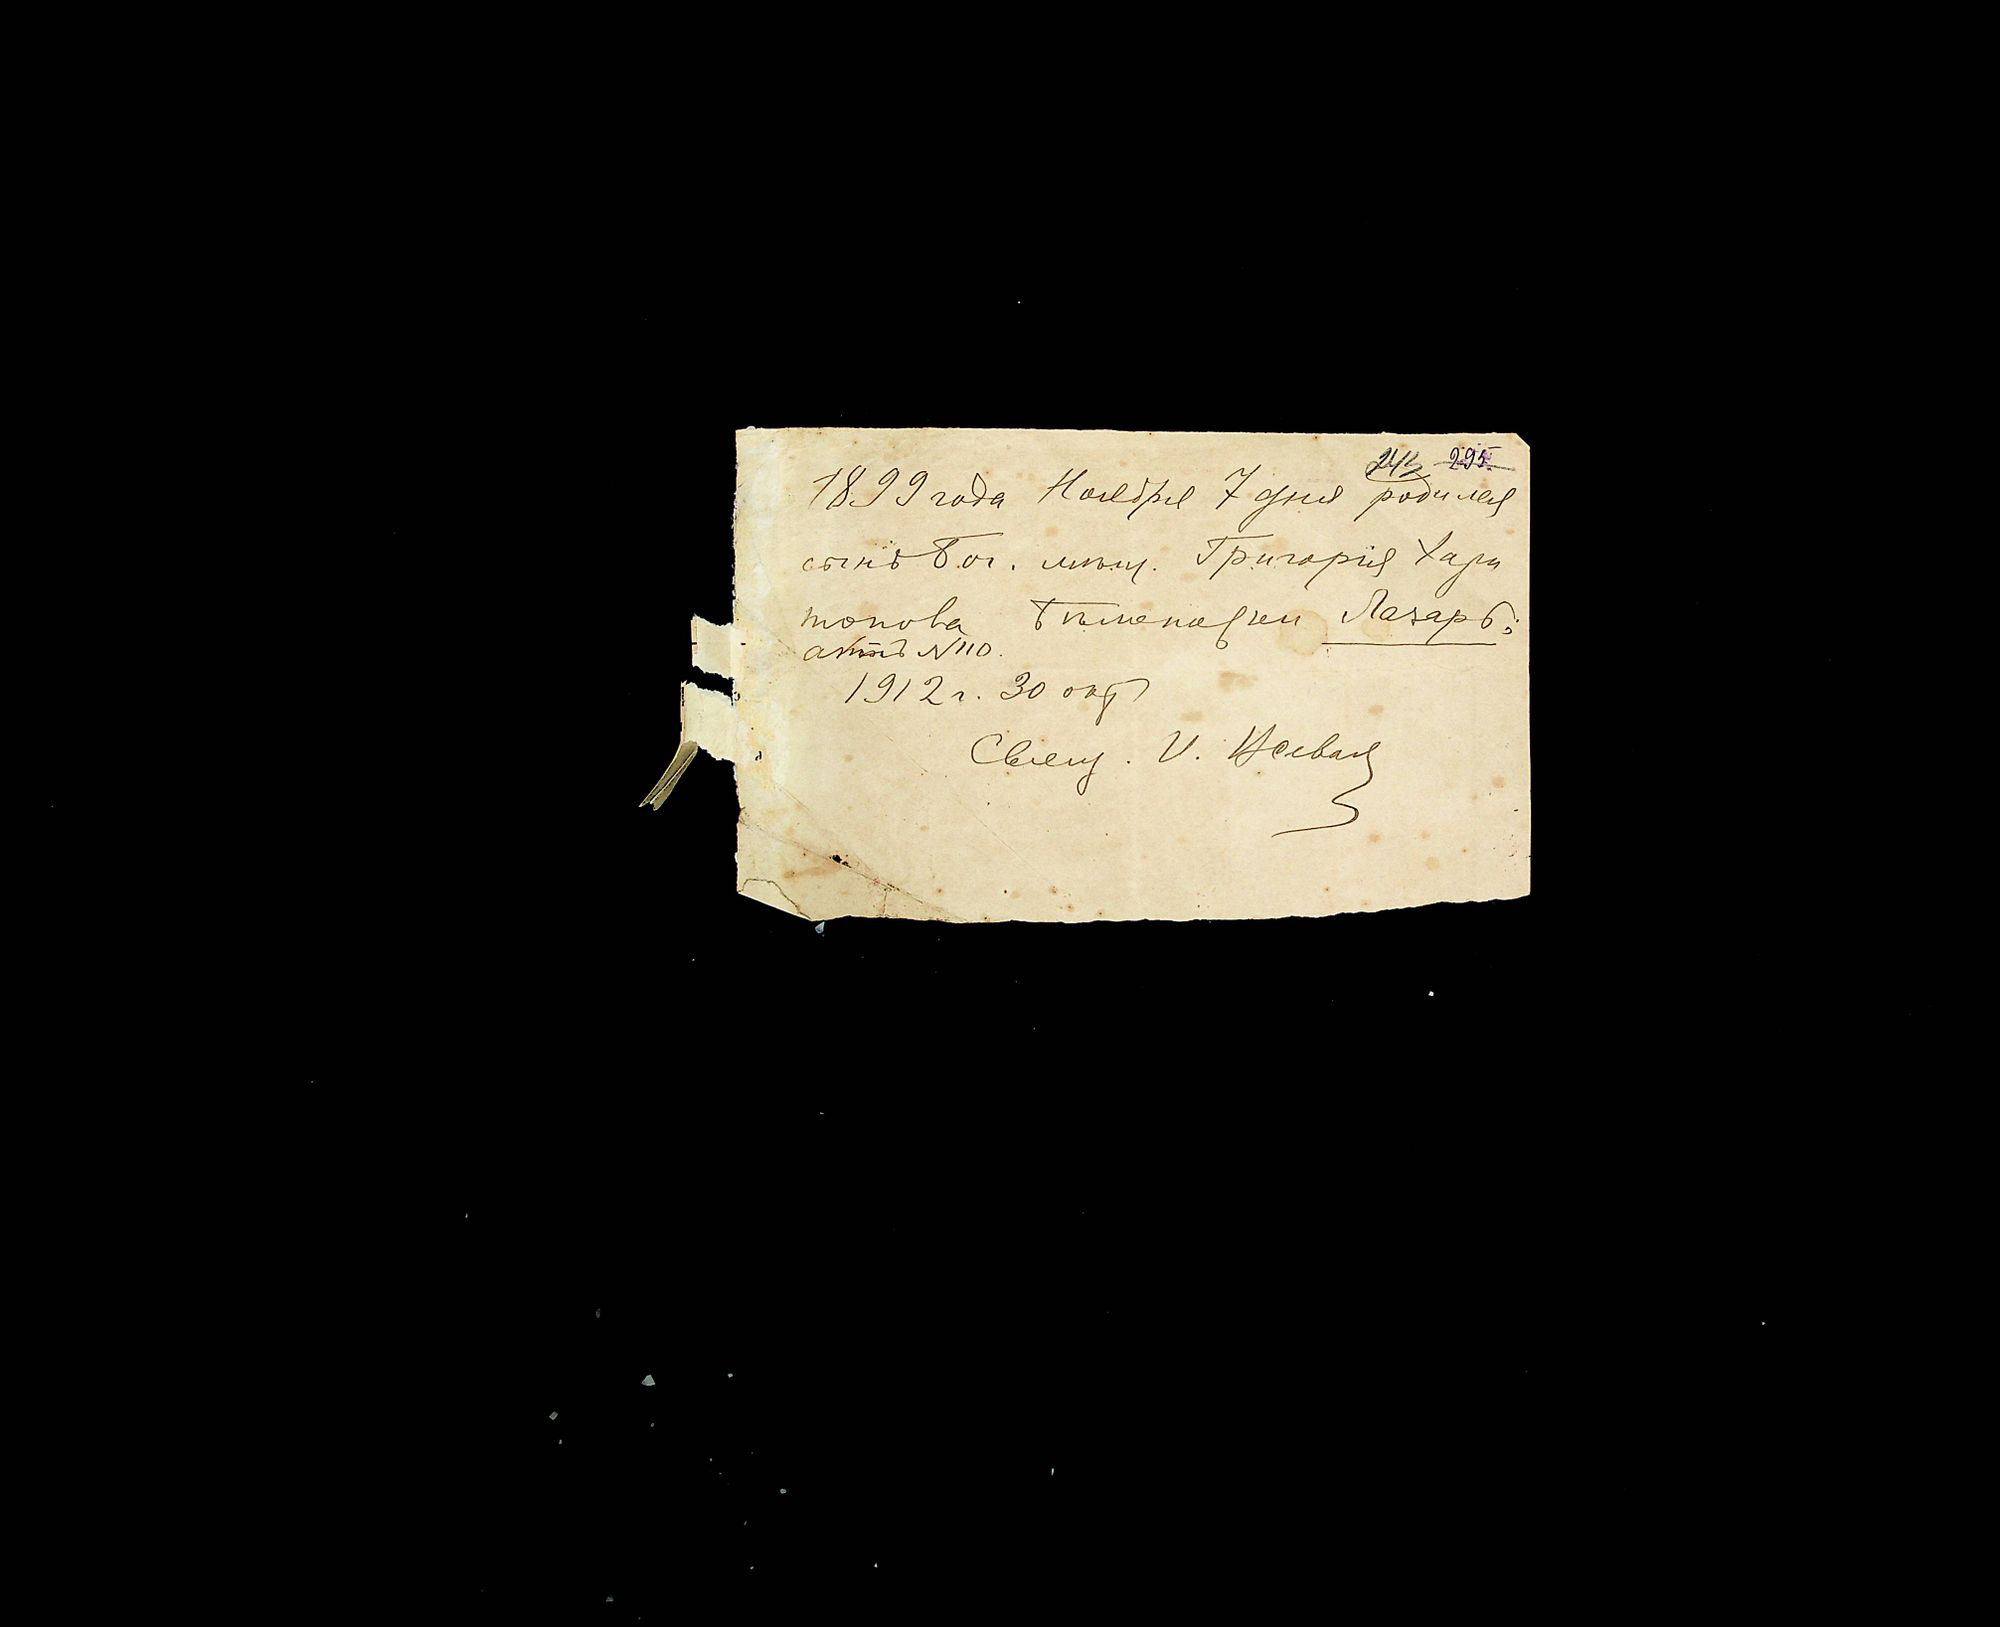 295
1899 года Ноября 7 дня родился
сынъ Бог. мѣщ. Григорія Хари
тонова Лазарь;
актъ №110.
1912 г. 30 окт
Свящ. И.